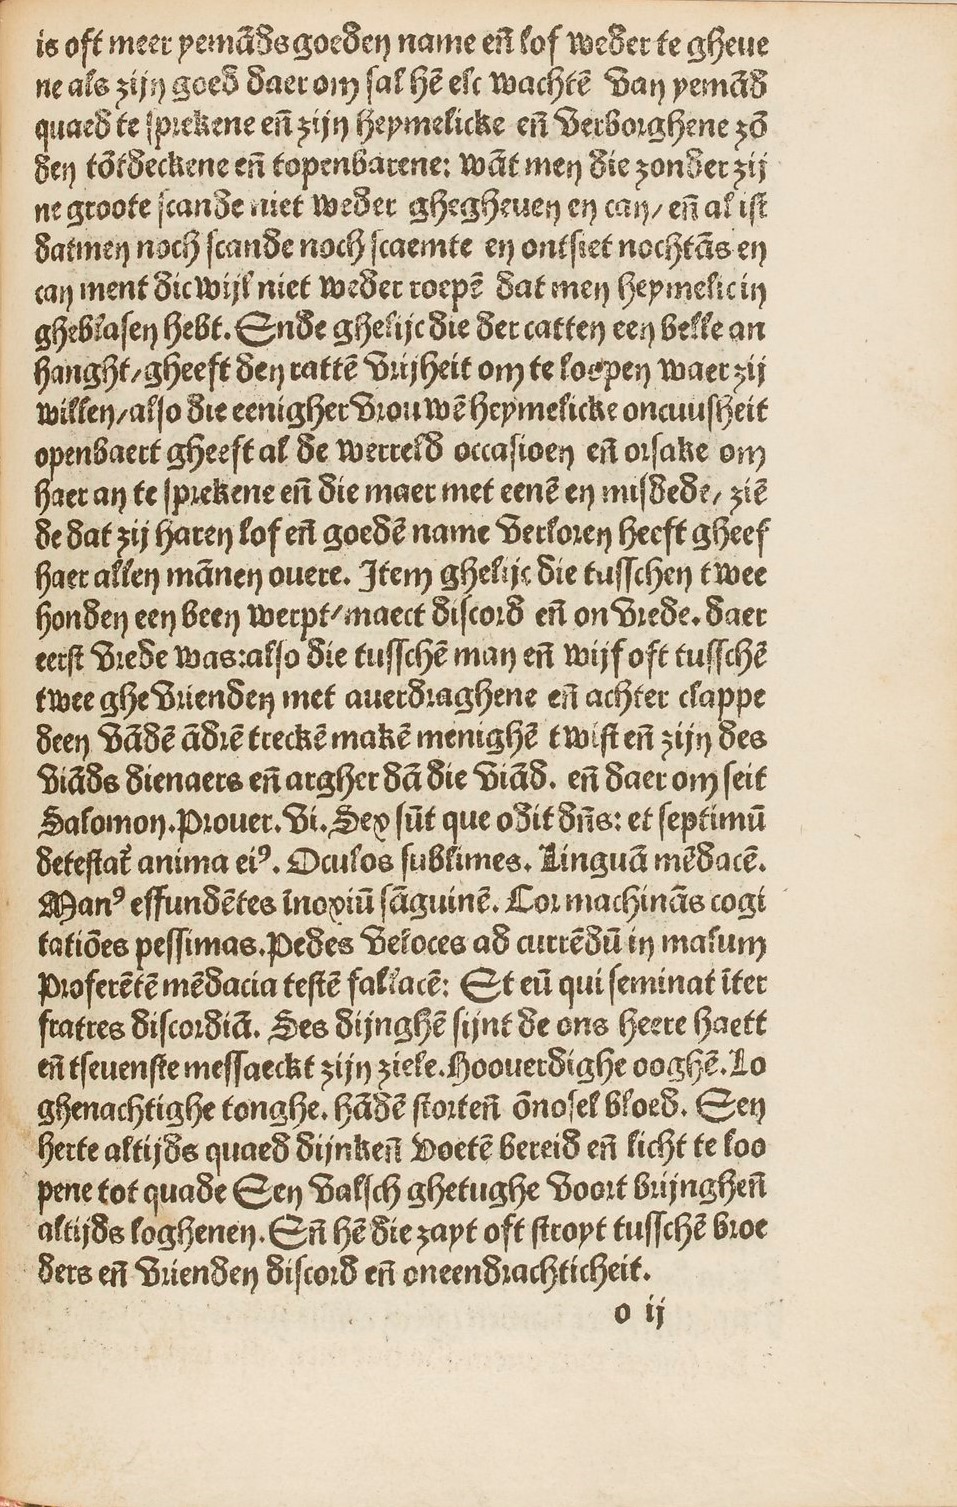 is oft meer yemãds goeden name eñ lof weder te gheue
ne als zijn goed daer om sal hẽ elc wachtẽ van yemãd
quaed te sprekene eñ zijn heymelicke eñ verborghene zõ
den tõtdeckene eñ topenbarene: wãt men die zonder zij
ne groote scande niet weder ghegheuen en can/ eñ al ist
datmen noch scande noch scaemte en ontsiet nochtãs en
can ment dicwijl niet weder roepẽ dat men heymelic in
gheblasen hebt. Ende ghelijc die der catten een belle an
hanght/gheeft den rattẽ vrijheit om te loopen waer zij
willen/also die eenigher vrouwẽ heymelicke oncuusheit
openbaert gheeft al de werreld occasioen eñ orsake om
haer an te sprekene eñ die maer met eenẽ en misdede/ ziẽ
de dat zij haren lof eñ goedẽ name verloren heeft gheef
haer allen mãnen ouere. Item ghelijc die tusschen twee
honden een been werpt/maect discord eñ onvrede. daer
eerst vrede was:also die tusschẽ man eñ wijf oft tusschẽ
twee ghevrienden met auerdraghene eñ achter clappe
deen vãdẽ ãdrẽ treckẽ makẽ menighẽ twist eñ zijn des
viãds dienaers eñ argher dã die viãd. eñ daer om seit
Salomon.Prouer.vi. Sex sũt que odit dñs: et septimũ
detestat᷑ anima eiꝰ. Oculos sublimes. Linguã mẽdacẽ.
Manꝰ effundẽtes ĩnoxiũ sãguinẽ. Cor machinãs cogi
tatiões pessimas.Pedes veloces ad currẽdũ in malum
Proferẽtẽ mẽdacia testẽ fallacẽ: Et eũ qui seminat ĩter
fratres discordiã. Ses dijnghẽ sijnt de ons heere haett
eñ tseuenste messaeckt zijn ziele.Hoouerdighe ooghẽ.Lo
ghenachtighe tonghe. hãdẽ storteñ õnosel bloed. Een
herte altijds quaed dijnkeñ Voetẽ bereid eñ licht te loo
pene tot quade Een valsch ghetughe voort brijngheñ
altijds loghenen. Eñ hẽ die zayt oft stroyt tusschẽ broe
ders eñ vrienden discord eñ oneendrachticheit.
o ij